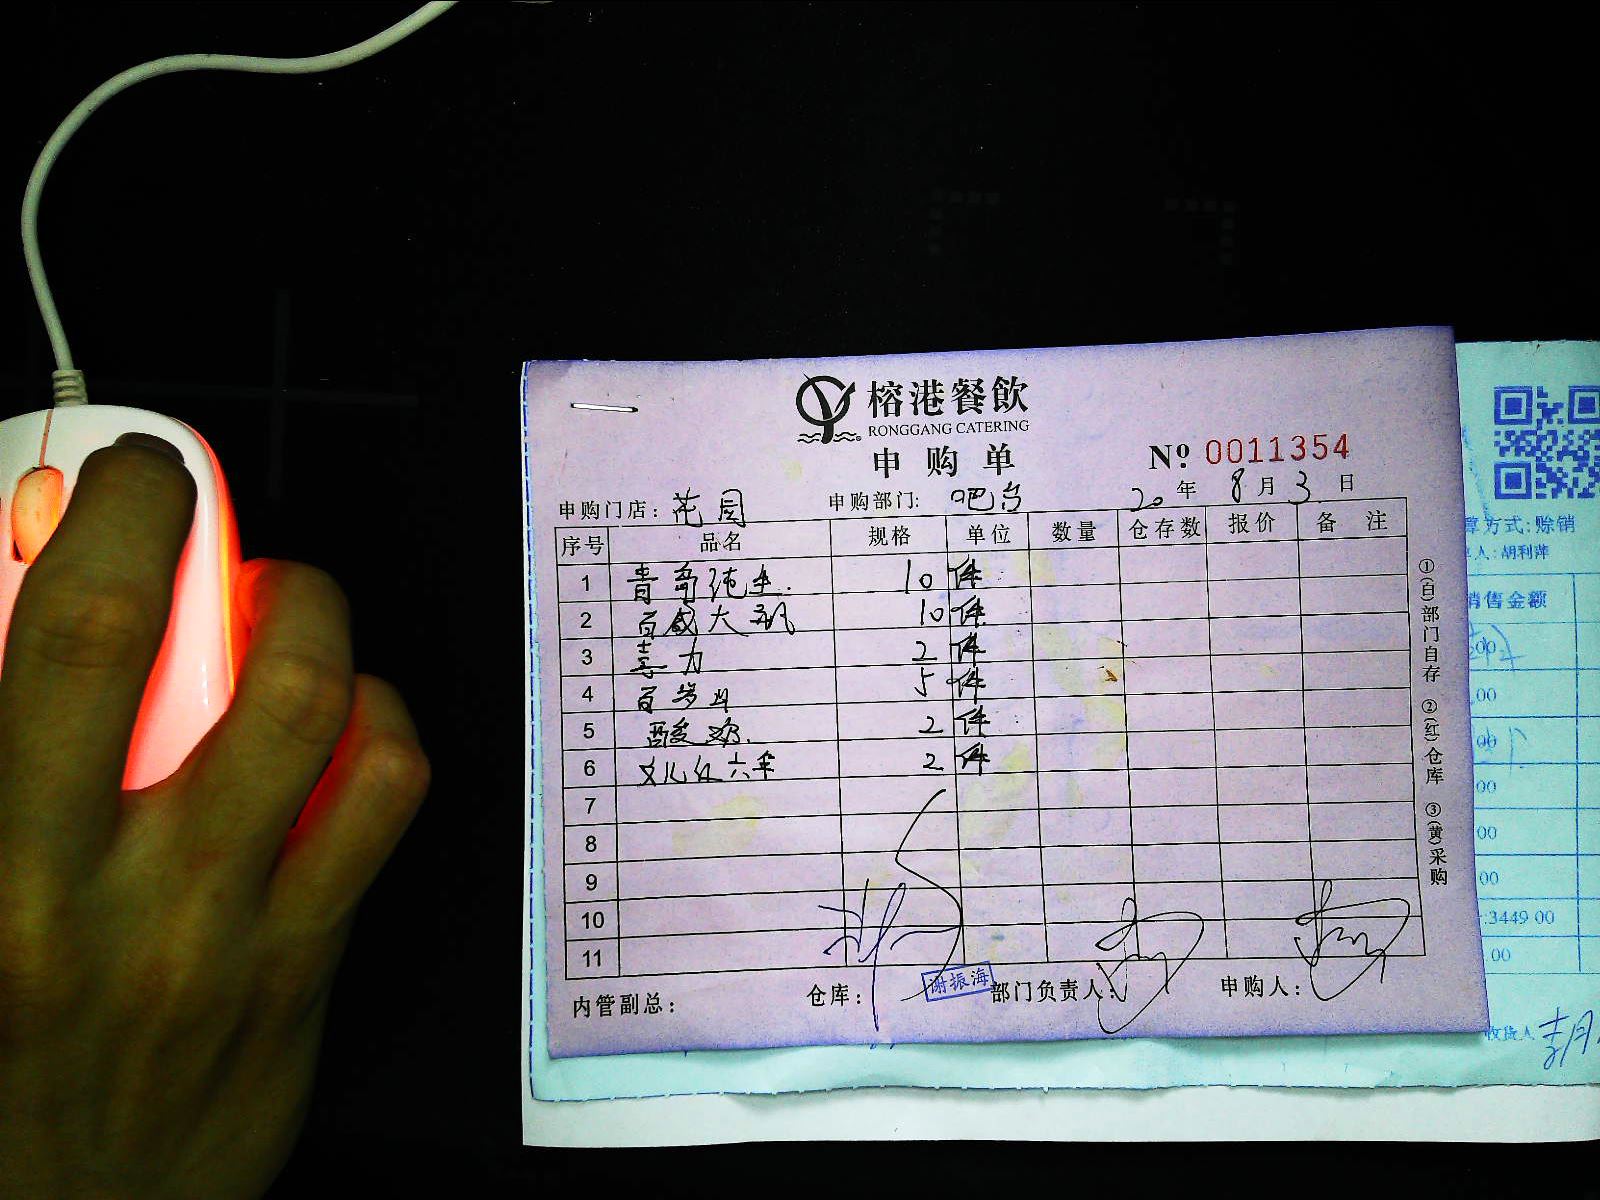 榕港餐飲
RONGGANG CATERING
申购单
Nº 0011354
申购门店: 花园 申购部门: 吧台 20年 8月 3日
序号 品名 规格 单位 数量 仓存数 报价 备注
1 青岛纯生 10 件
2 百威大瓶 10 件
3 喜力 2 件
4 百岁山 5 件
5 酸奶 2 件
6 女儿红六年 2 件
7
8
9
10
11
内管副总: 仓库: 谢振海 部门负责人: 申购人:
①(白)部门自存 ②(红)仓库 ③(黄)采购
算方式:赊销
人:胡利萍
销售金额
.00
.00
00
00
00
00
:3449 00
00
收货人